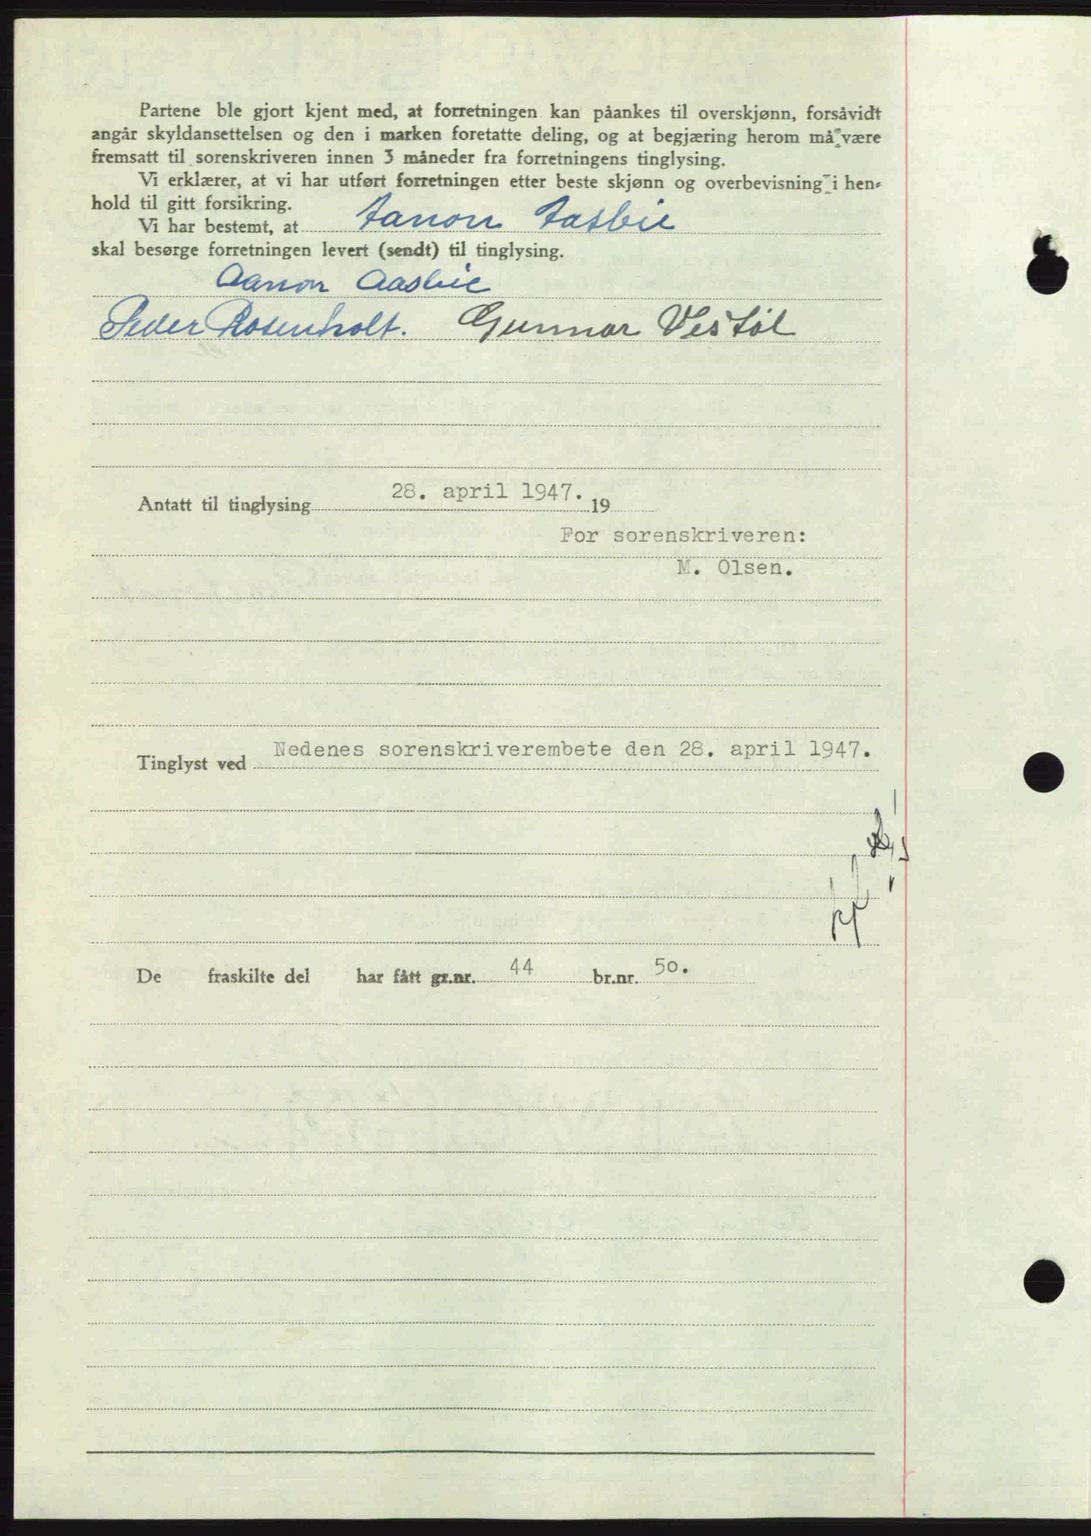 Partene ble gjort kjent med, at forretningen kan påankes til overskjønn, forsåvidt
angår skyldansettelsen og den i marken foretatte deling, og at begjæring herom må være
fremsatt til sorenskriveren innen 3 måneder fra forretningens tinglysing.
Vi erklærer, at vi har utført forretningen etter beste skjønn og overbevisning i hen-
hold til gitt forsikring.
Vi har bestemt, at Aanon Aasbie
skal besørge forretningen levert (sendt) til tinglysing.
Aanon Aasbie
Peder Rosenholt. Gunnar Vestøl
Antatt til tinglysing 28. april 1947. 19
For sorenskriveren:
M. Olsen.
Tinglyst ved Nedenes sorenskriverembete den 28. april 1947.
De fraskilte del har fått gr.nr. 44 br.nr. 50.